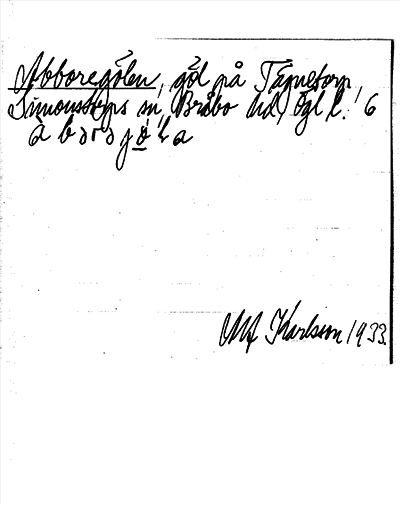 Abboregölen, göl på Tågnetorp,
Simonstorps sn, Bråbo hd, Ögl l. 6
Karlsson 1933.